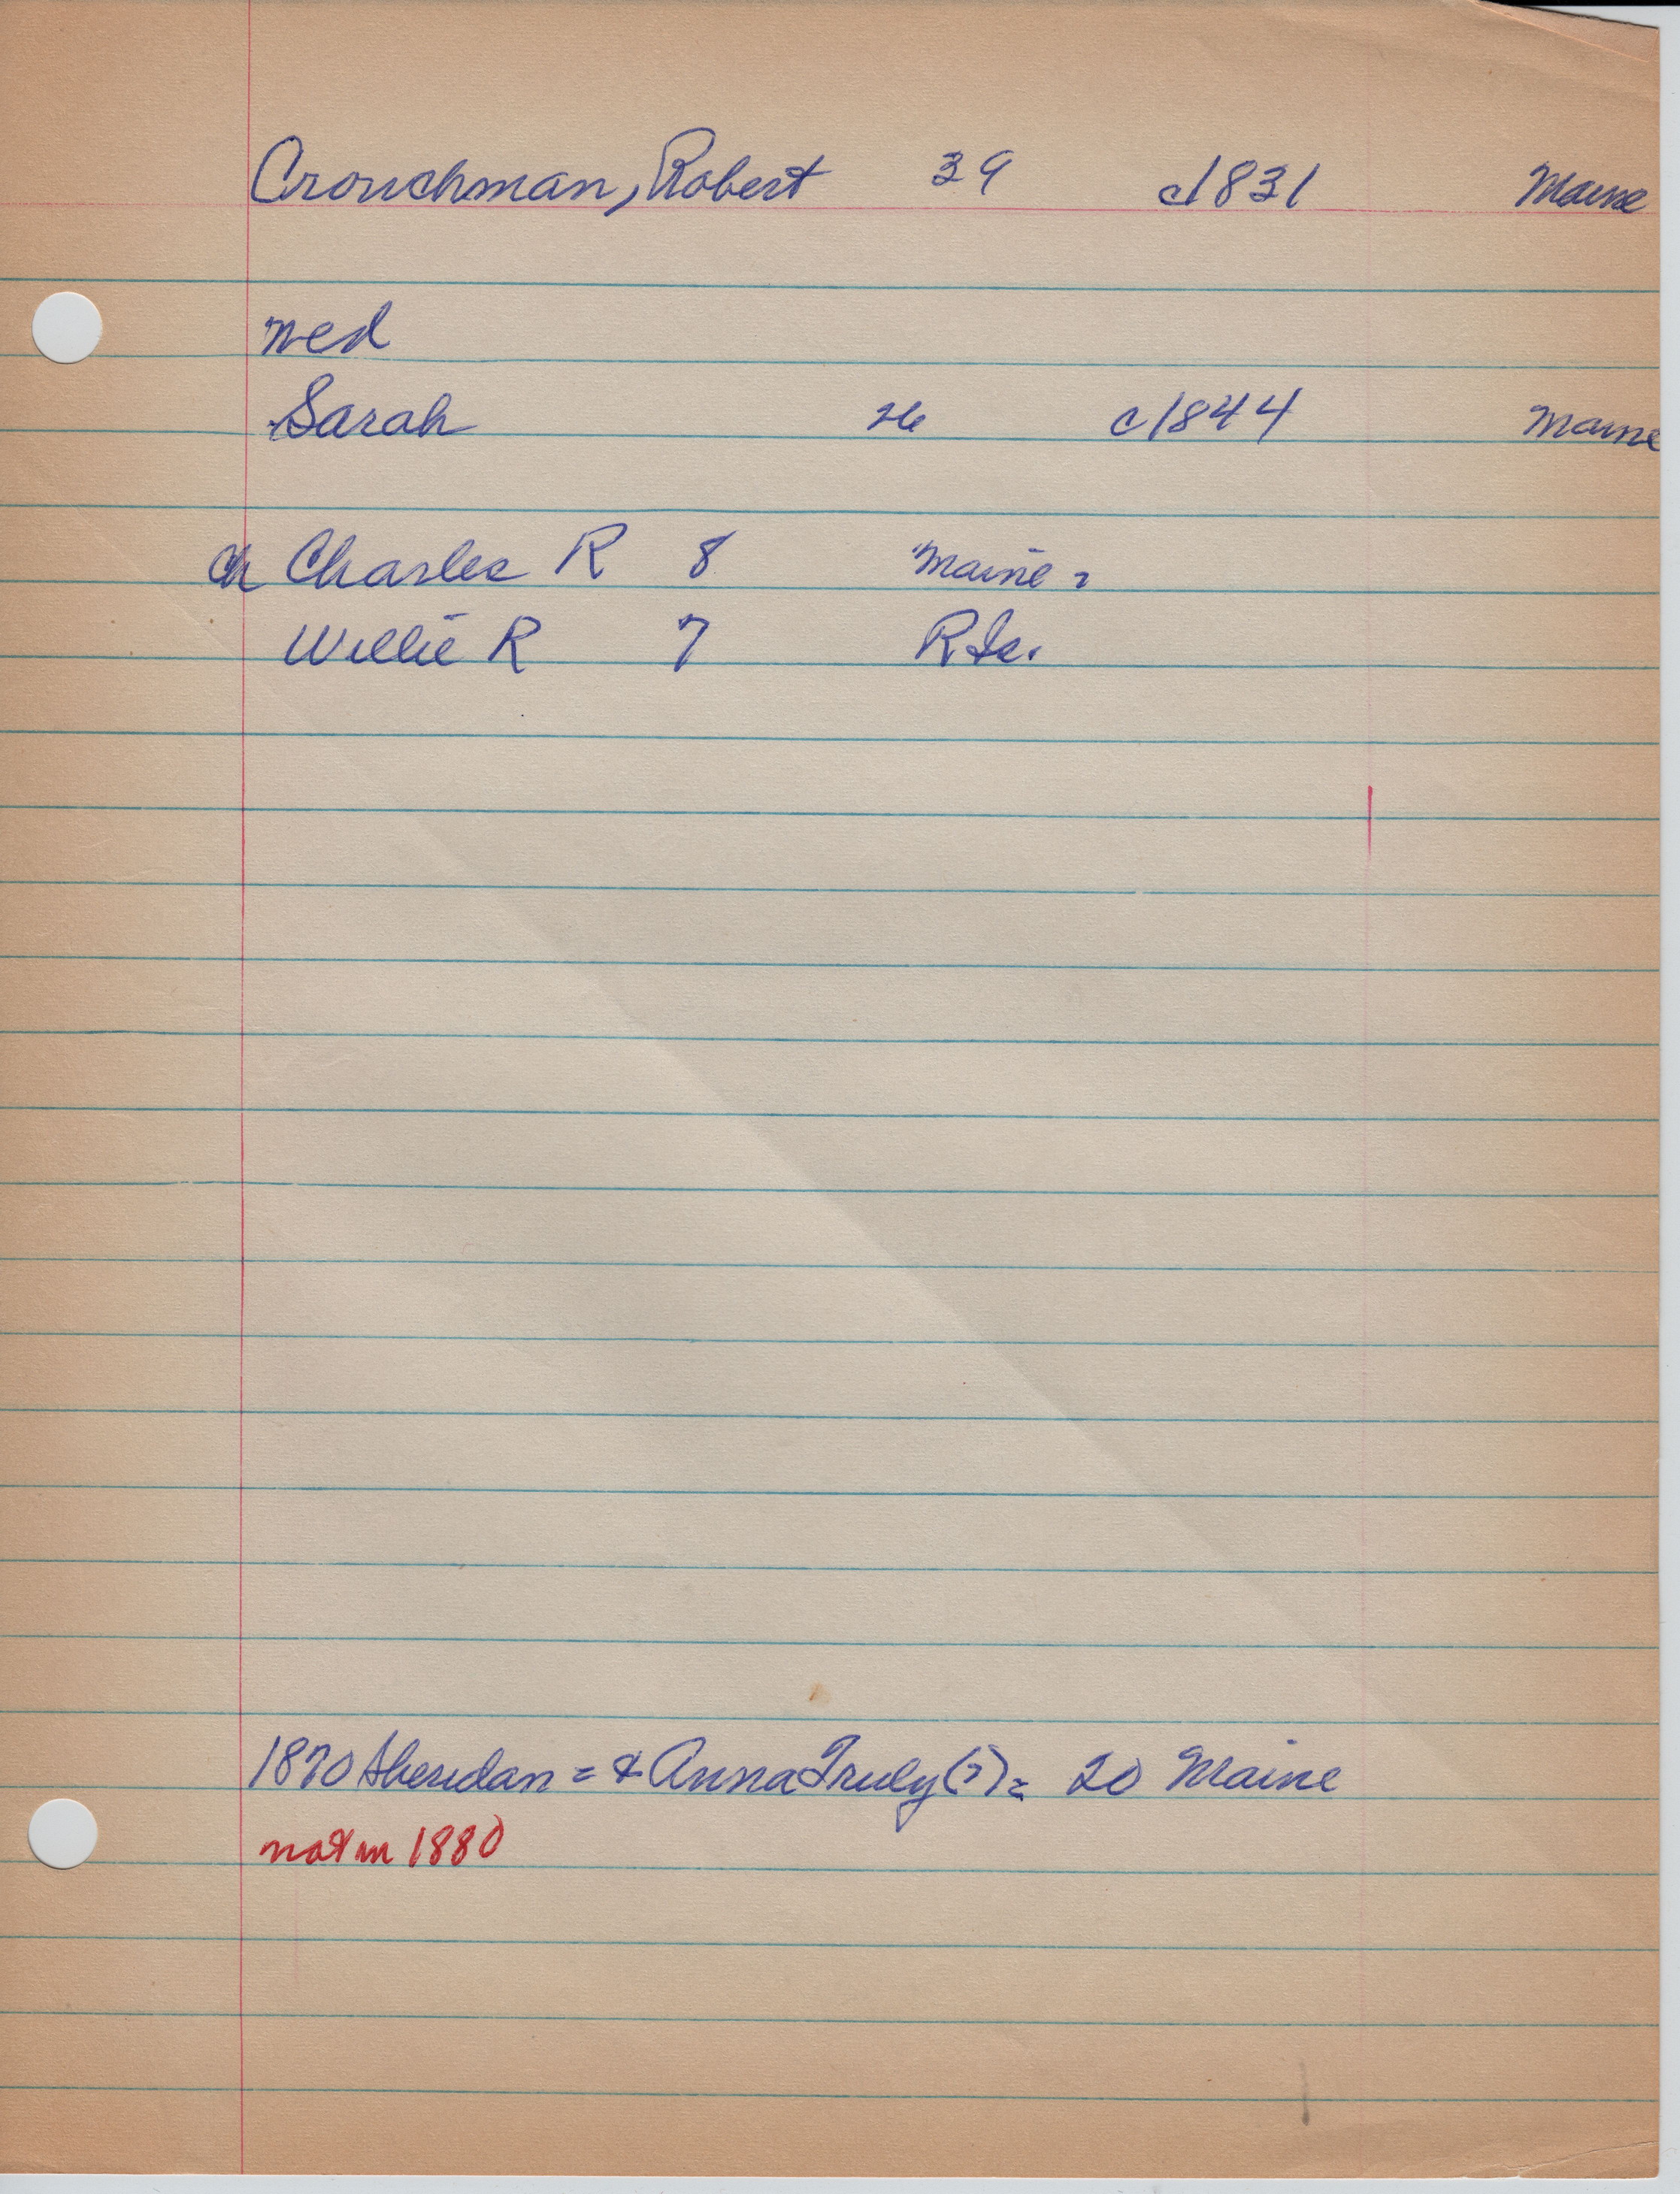 Crouchman, Robert 39 c1831 Maine
med
Sarah 26 c1844 Maine
ch Charles R 8 Maine
Willie R 7
1870 Sheridan = & Anna Truly (?) = 20 Maine
not in 1880